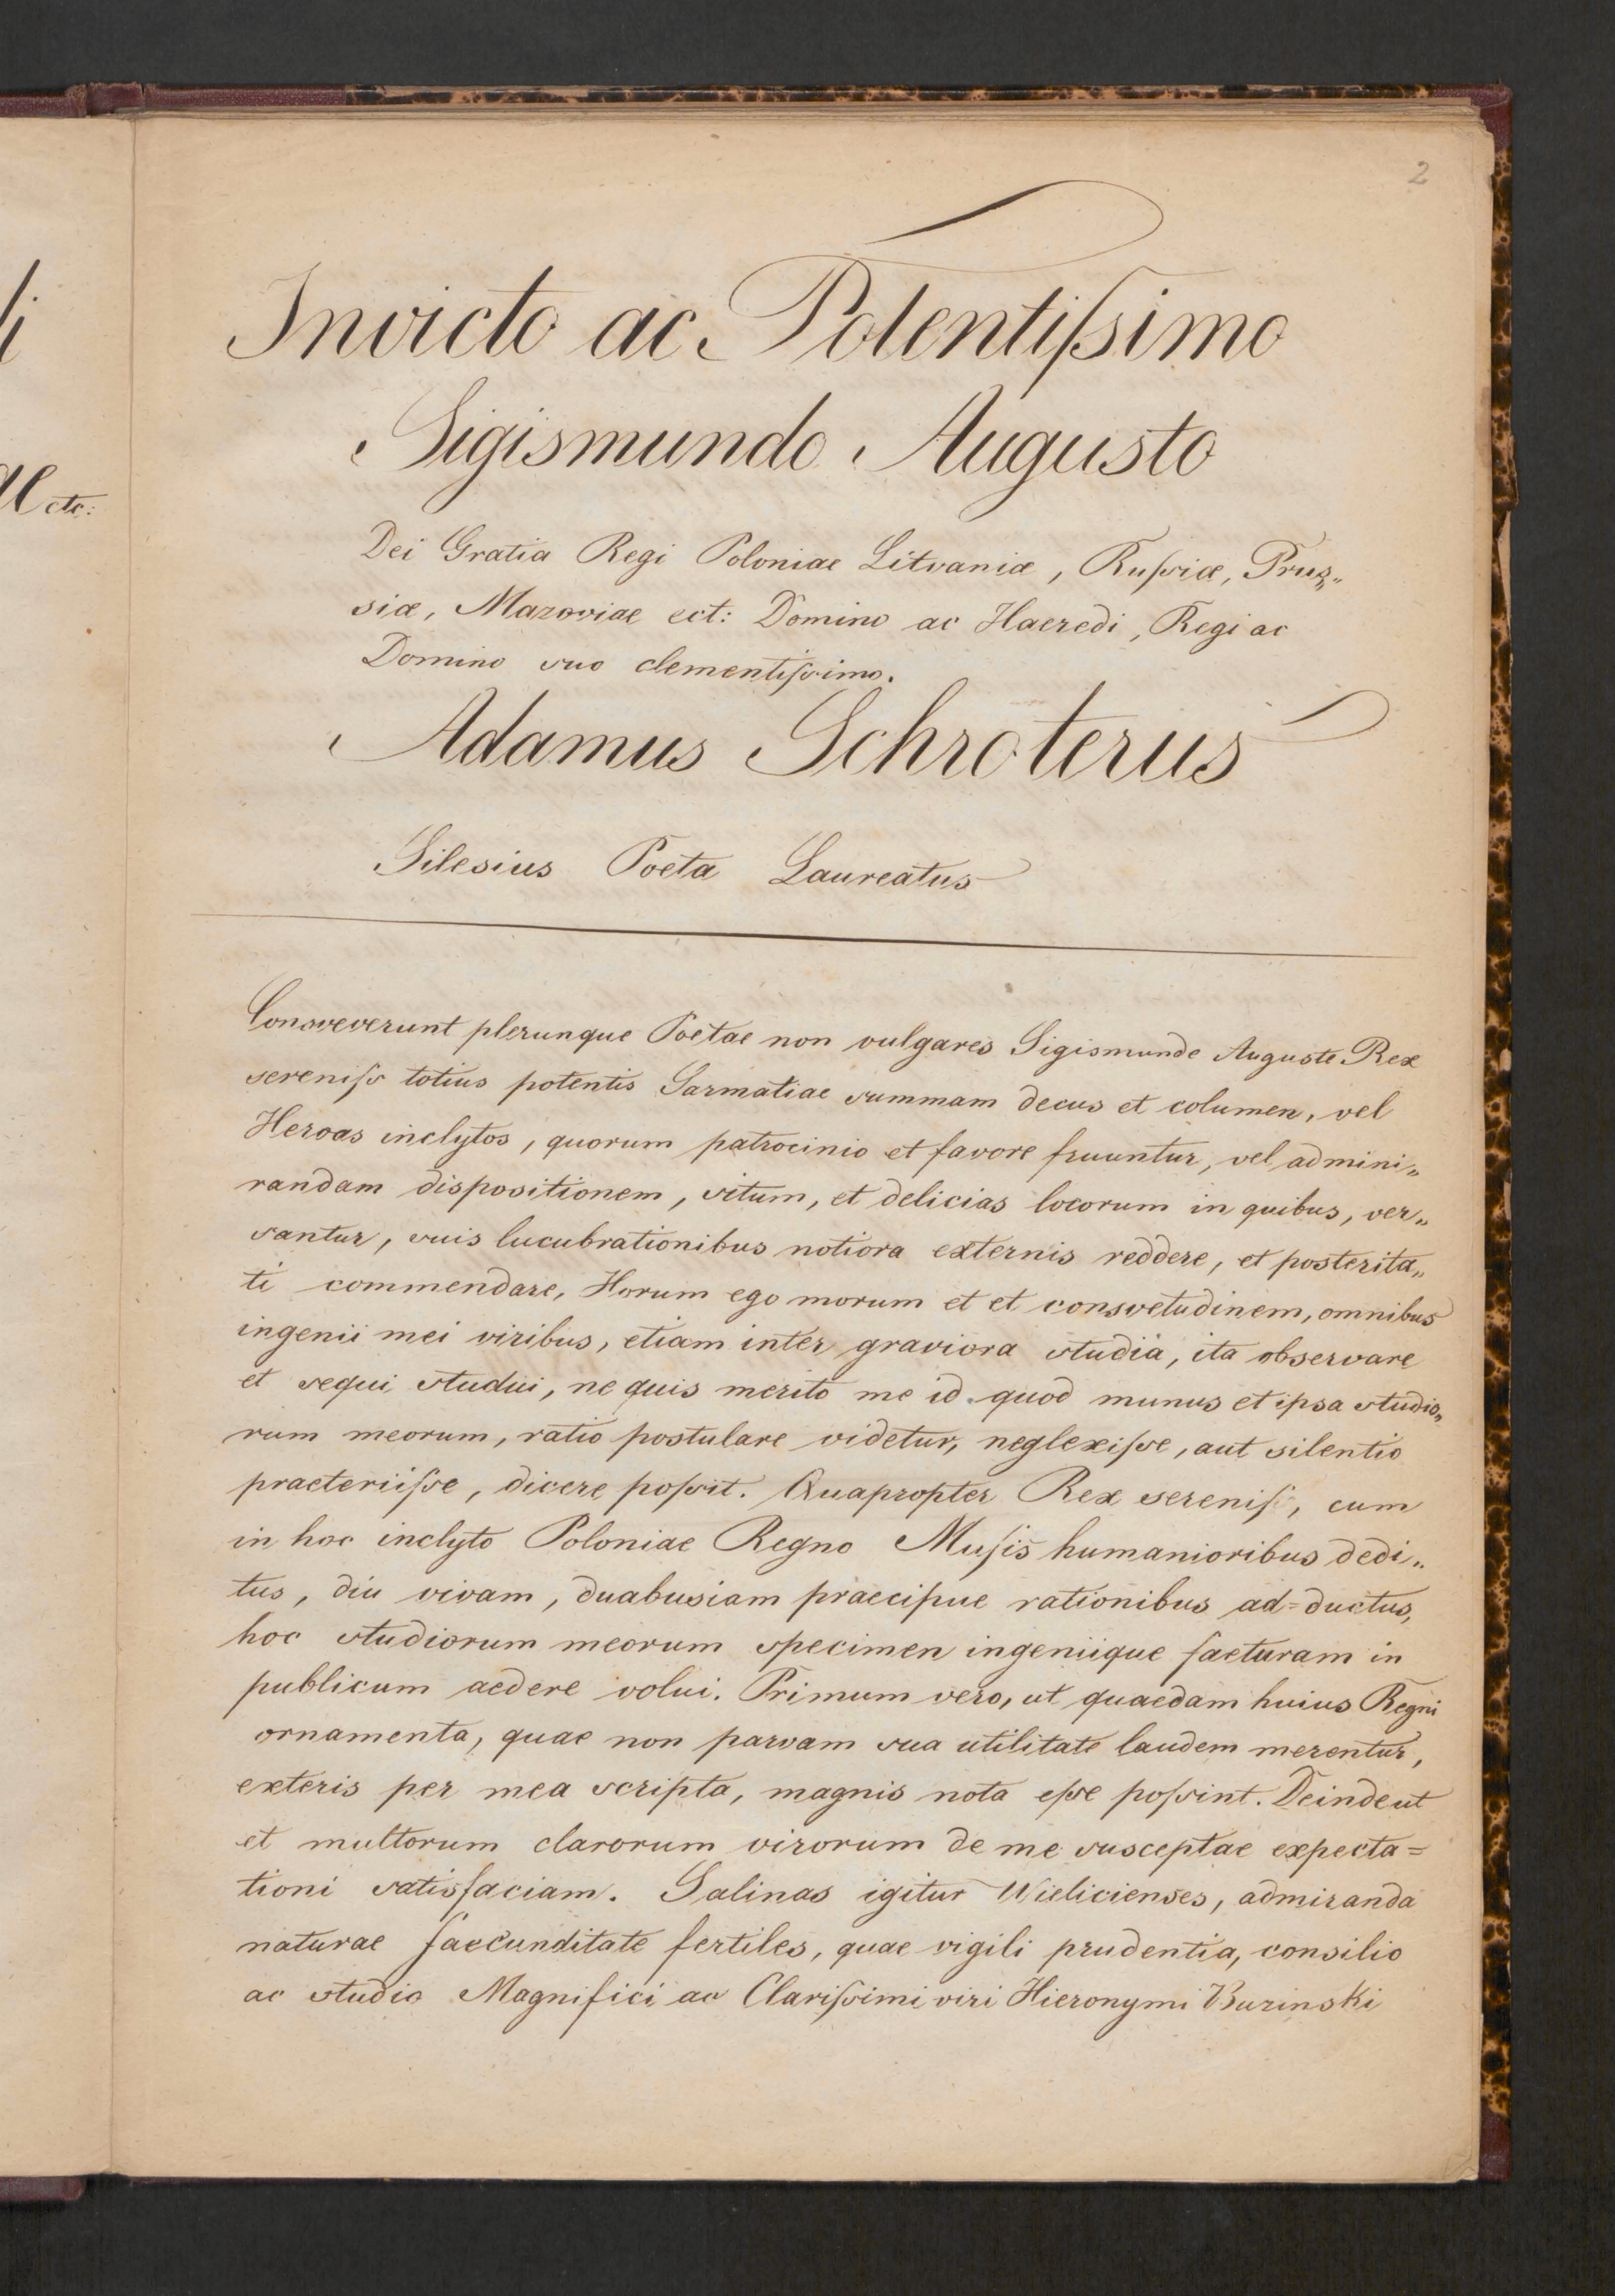 2
Invicto ac Potentiſsimo
Sigismundo Augusto
Dei Gratia Regi Poloniae Litvaniæ, Ruſsiæ, Prus„
siæ, Mazoviae ect: Domino ac Haeredi, Regi ac
Domino suo clementiſsimo.
Adamus Schroterus
Silesius Poeta Laureatus
Consveverunt plerunque Poetae non vulgares Sigismunde Auguste Rex
sereniſs totius potentis Sarmatiae summam decus et columen, vel
Heroas inclytos, quorum patrocinio et favore fruuntur, vel admini„
randam dispositionem, situm, et delicias locorum in quibus, ver„
santur, suis lucubrationibus notiora externis reddere, et posterita„
ti commendare, Horum ego morum et et consvetudinem, omnibus
ingenii mei viribus, etiam inter graviora studia, ita observare
et sequi studui, ne quis merito me id quod munus et ipsa studio„
rum meorum, ratio postulare videtur, neglexiſse, aut silentio
praeteriiſse, dicere poſsit. Quapropter Rex sereniſ, cum
in hoc inclyto Poloniae Regno Muſis humanioribus dedi„
tus, diu vivam, duabusiam praecipue rationibus ad=ductus,
hoc studiorum meorum specimen ingeniique faeturam in
publicum aedere volui. Primum vero, ut quaedam huius Regni
ornamenta, quae non parvam sua utilitate laudem merentur,
exteris per mea scripta, magnis nota eſse poſsint. Deinde ut
et multorum clarorum virorum de me susceptae expecta=
tioni satisfaciam. Salinas igitur Wielicienses, admiranda
naturae faecunditate fertiles, quae vigili prudentia, consilio
ac studio Magnifici ac Clariſsimi viri Hieronymi Burinski
ae etc: